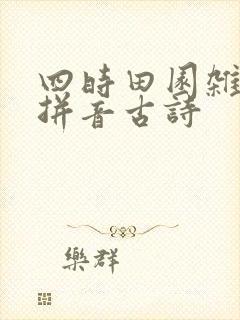 四時田園雜
拼音古詩
樂群